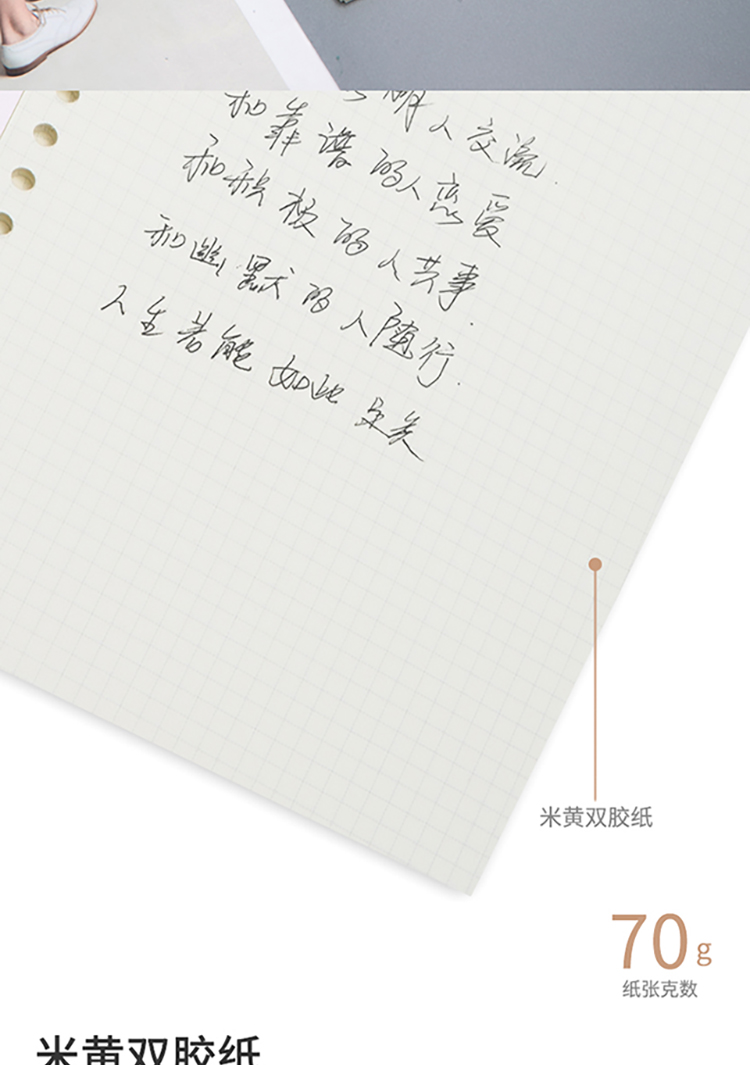 明人交流.
和靠谱的人恋爱
和积极的人共事.
和幽默的人随行.
人生若能如此 足矣
米黄双胶纸
70g
纸张克数
米黄双胶纸